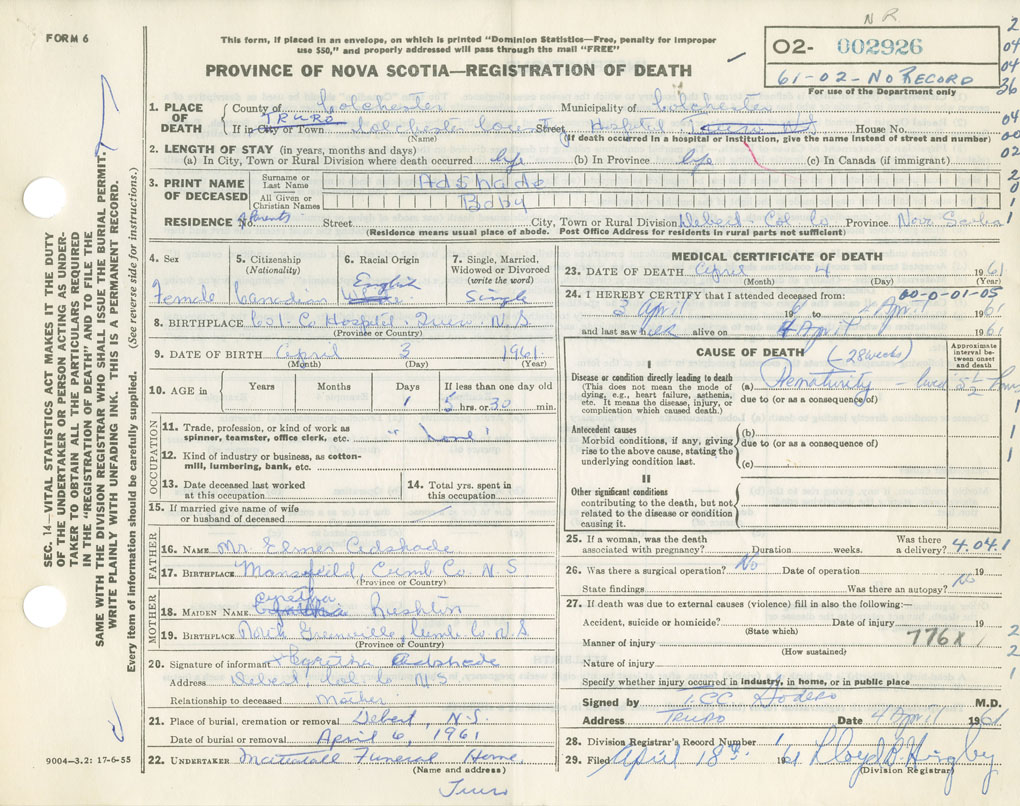 N R
FORM 6
This form, if placed in an envelope, on which is printed "Dominion Statistics—Free, penalty for improper
use $50," and properly addressed will pass through the mail "FREE"
02- 002926
61-02-No Record
For use of the Department only
PROVINCE OF NOVA SCOTIA—REGISTRATION OF DEATH
1. PLACE OF DEATH
County of Colchester Municipality of Colchester
If in City or Town TRURO Colchester County Street Hospital Truro N.S House No.
(Name) (If death occurred in a hospital or institution, give the name instead of street and number)
2. LENGTH OF STAY (in years, months and days)
(a) In City, Town or Rural Division where death occurred life (b) In Province life (c) In Canada (if immigrant)
3. PRINT NAME OF DECEASED
Surname or Last Name Adshade
All Given or Christian Names Baby
RESIDENCE No. of Parents Street City, Town or Rural Division Debert - Col Co Province Nova Scotia
(Residence means usual place of abode. Post Office Address for residents in rural parts not sufficient)
4. Sex Female
5. Citizenship (Nationality) Canadian
6. Racial Origin English
7. Single, Married, Widowed or Divorced (write the word) Single
8. BIRTHPLACE Col. Co Hospital, Truro. N.S
(Province or Country)
9. DATE OF BIRTH April 3 1961
(Month) (Day) (Year)
10. AGE in Years Months Days 1 If less than one day old 5 hrs. or 30 min.
OCCUPATION
11. Trade, profession, or kind of work as spinner, teamster, office clerk, etc. "none"
12. Kind of industry or business, as cotton-mill, lumbering, bank, etc.
13. Date deceased last worked at this occupation
14. Total yrs. spent in this occupation
15. If married give name of wife or husband of deceased
FATHER
16. NAME Mr Elmer Adshade
17. BIRTHPLACE Mansfield, Cumb Co N S
(Province or Country)
MOTHER
18. MAIDEN NAME Rushton
19. BIRTHPLACE North Greenville, Cumb Co N.S
(Province or Country)
20. Signature of informant Adshade
Address Debert, Col. Co N S
Relationship to deceased Mother
21. Place of burial, cremation or removal Debert, N.S.
Date of burial or removal April 6, 1961
22. UNDERTAKER Mattatall Funeral Home
(Name and address)
Truro
MEDICAL CERTIFICATE OF DEATH
23. DATE OF DEATH April 4 1961
(Month) (Day) (Year)
24. I HEREBY CERTIFY that I attended deceased from: 00-0-01-05
3 April 1961 to 4 April 1961
and last saw her alive on 4 April 1961
CAUSE OF DEATH (-28 weeks)
Approximate interval between onset and death
I
Disease or condition directly leading to death
(This does not mean the mode of dying, e.g., heart failure, asthenia, etc. It means the disease, injury, or complication which caused death.)
(a) Prematurity - lived 5 1/2 hours
due to (or as a consequence of)
Antecedent causes
Morbid conditions, if any, giving rise to the above cause, stating the underlying condition last.
(b)
due to (or as a consequence of)
(c)
II
Other significant conditions contributing to the death, but not related to the disease or condition causing it.
25. If a woman, was the death associated with pregnancy? Duration weeks. Was there a delivery? 4.04.1
26. Was there a surgical operation? No Date of operation 19
State findings Was there an autopsy? No
27. If death was due to external causes (violence) fill in also the following:—
Accident, suicide or homicide? Date of injury 19
(State which)
Manner of injury 776X
(How sustained)
Nature of injury
Specify whether injury occurred in industry, in home, or in public place
Signed by M.D.
Address TRURO Date 4 April 1961
28. Division Registrar's Record Number 1
29. Filed April 18th 1961 Lloyd B. Higby
(Division Registrar)
SEC. 14—VITAL STATISTICS ACT MAKES IT THE DUTY
OF THE UNDERTAKER OR PERSON ACTING AS UNDER-
TAKER TO OBTAIN ALL THE PARTICULARS REQUIRED
IN THE "REGISTRATION OF DEATH" AND TO FILE THE
SAME WITH THE DIVISION REGISTRAR WHO SHALL ISSUE THE BURIAL PERMIT.
WRITE PLAINLY WITH UNFADING INK. THIS IS A PERMANENT RECORD.
Every item of information should be carefully supplied. (See reverse side for instructions.)
9004—3.2: 17-6-55
2
04
04
26
04
00
02
2
0
1
1
1
1
1
2
2
1